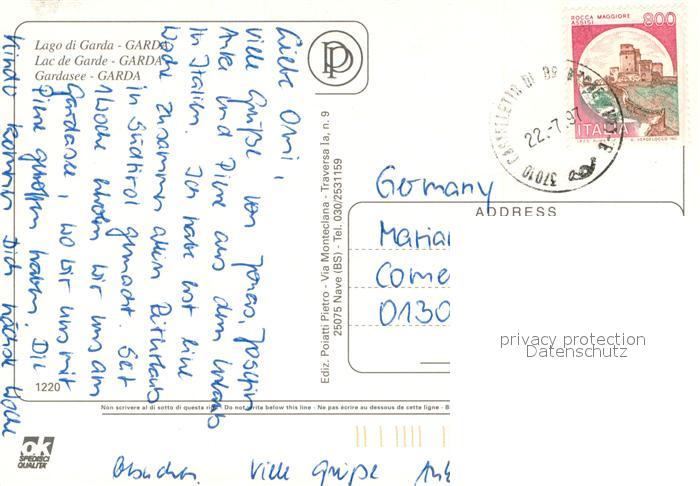 Lago di Garda - GARDA
Lac de Garde - GARDA
Gardasee - GARDA
Liebe Omi,
viele Grüße von Jonas, Joschin
Anke und Pirre aus dem Urlaub
in Italien. Ich habe erst eine
Woche zusammen allein Reiturlaub
in Südtirol gemacht. Seit
1 Woche erholen wir uns am
Gardasee, wo wir uns mit
Pirre getroffen haben. Die
Kinder kommen Dich nächste Woche
besuchen. Viele Grüße Anke
1220
ok
SPEDISCI
QUALITA'
Ediz. Poiatti Pietro - Via Monteclana - Traversa Ia, n. 9
25075 Nave (BS) - Tel. 030/2531159
Non scrivere al di sotto di questa riga - Do not write below this line - Ne pas écrire au dessous de cette ligne - B
ROCCA MAGGIORE
ASSISI
800
ITALIA
37010
22.-7.97
Germany
ADDRESS
Maria
Come
0130
privacy protection
Datenschutz